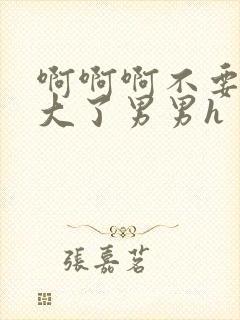 啊啊啊不要
大了男男h
張嘉茗